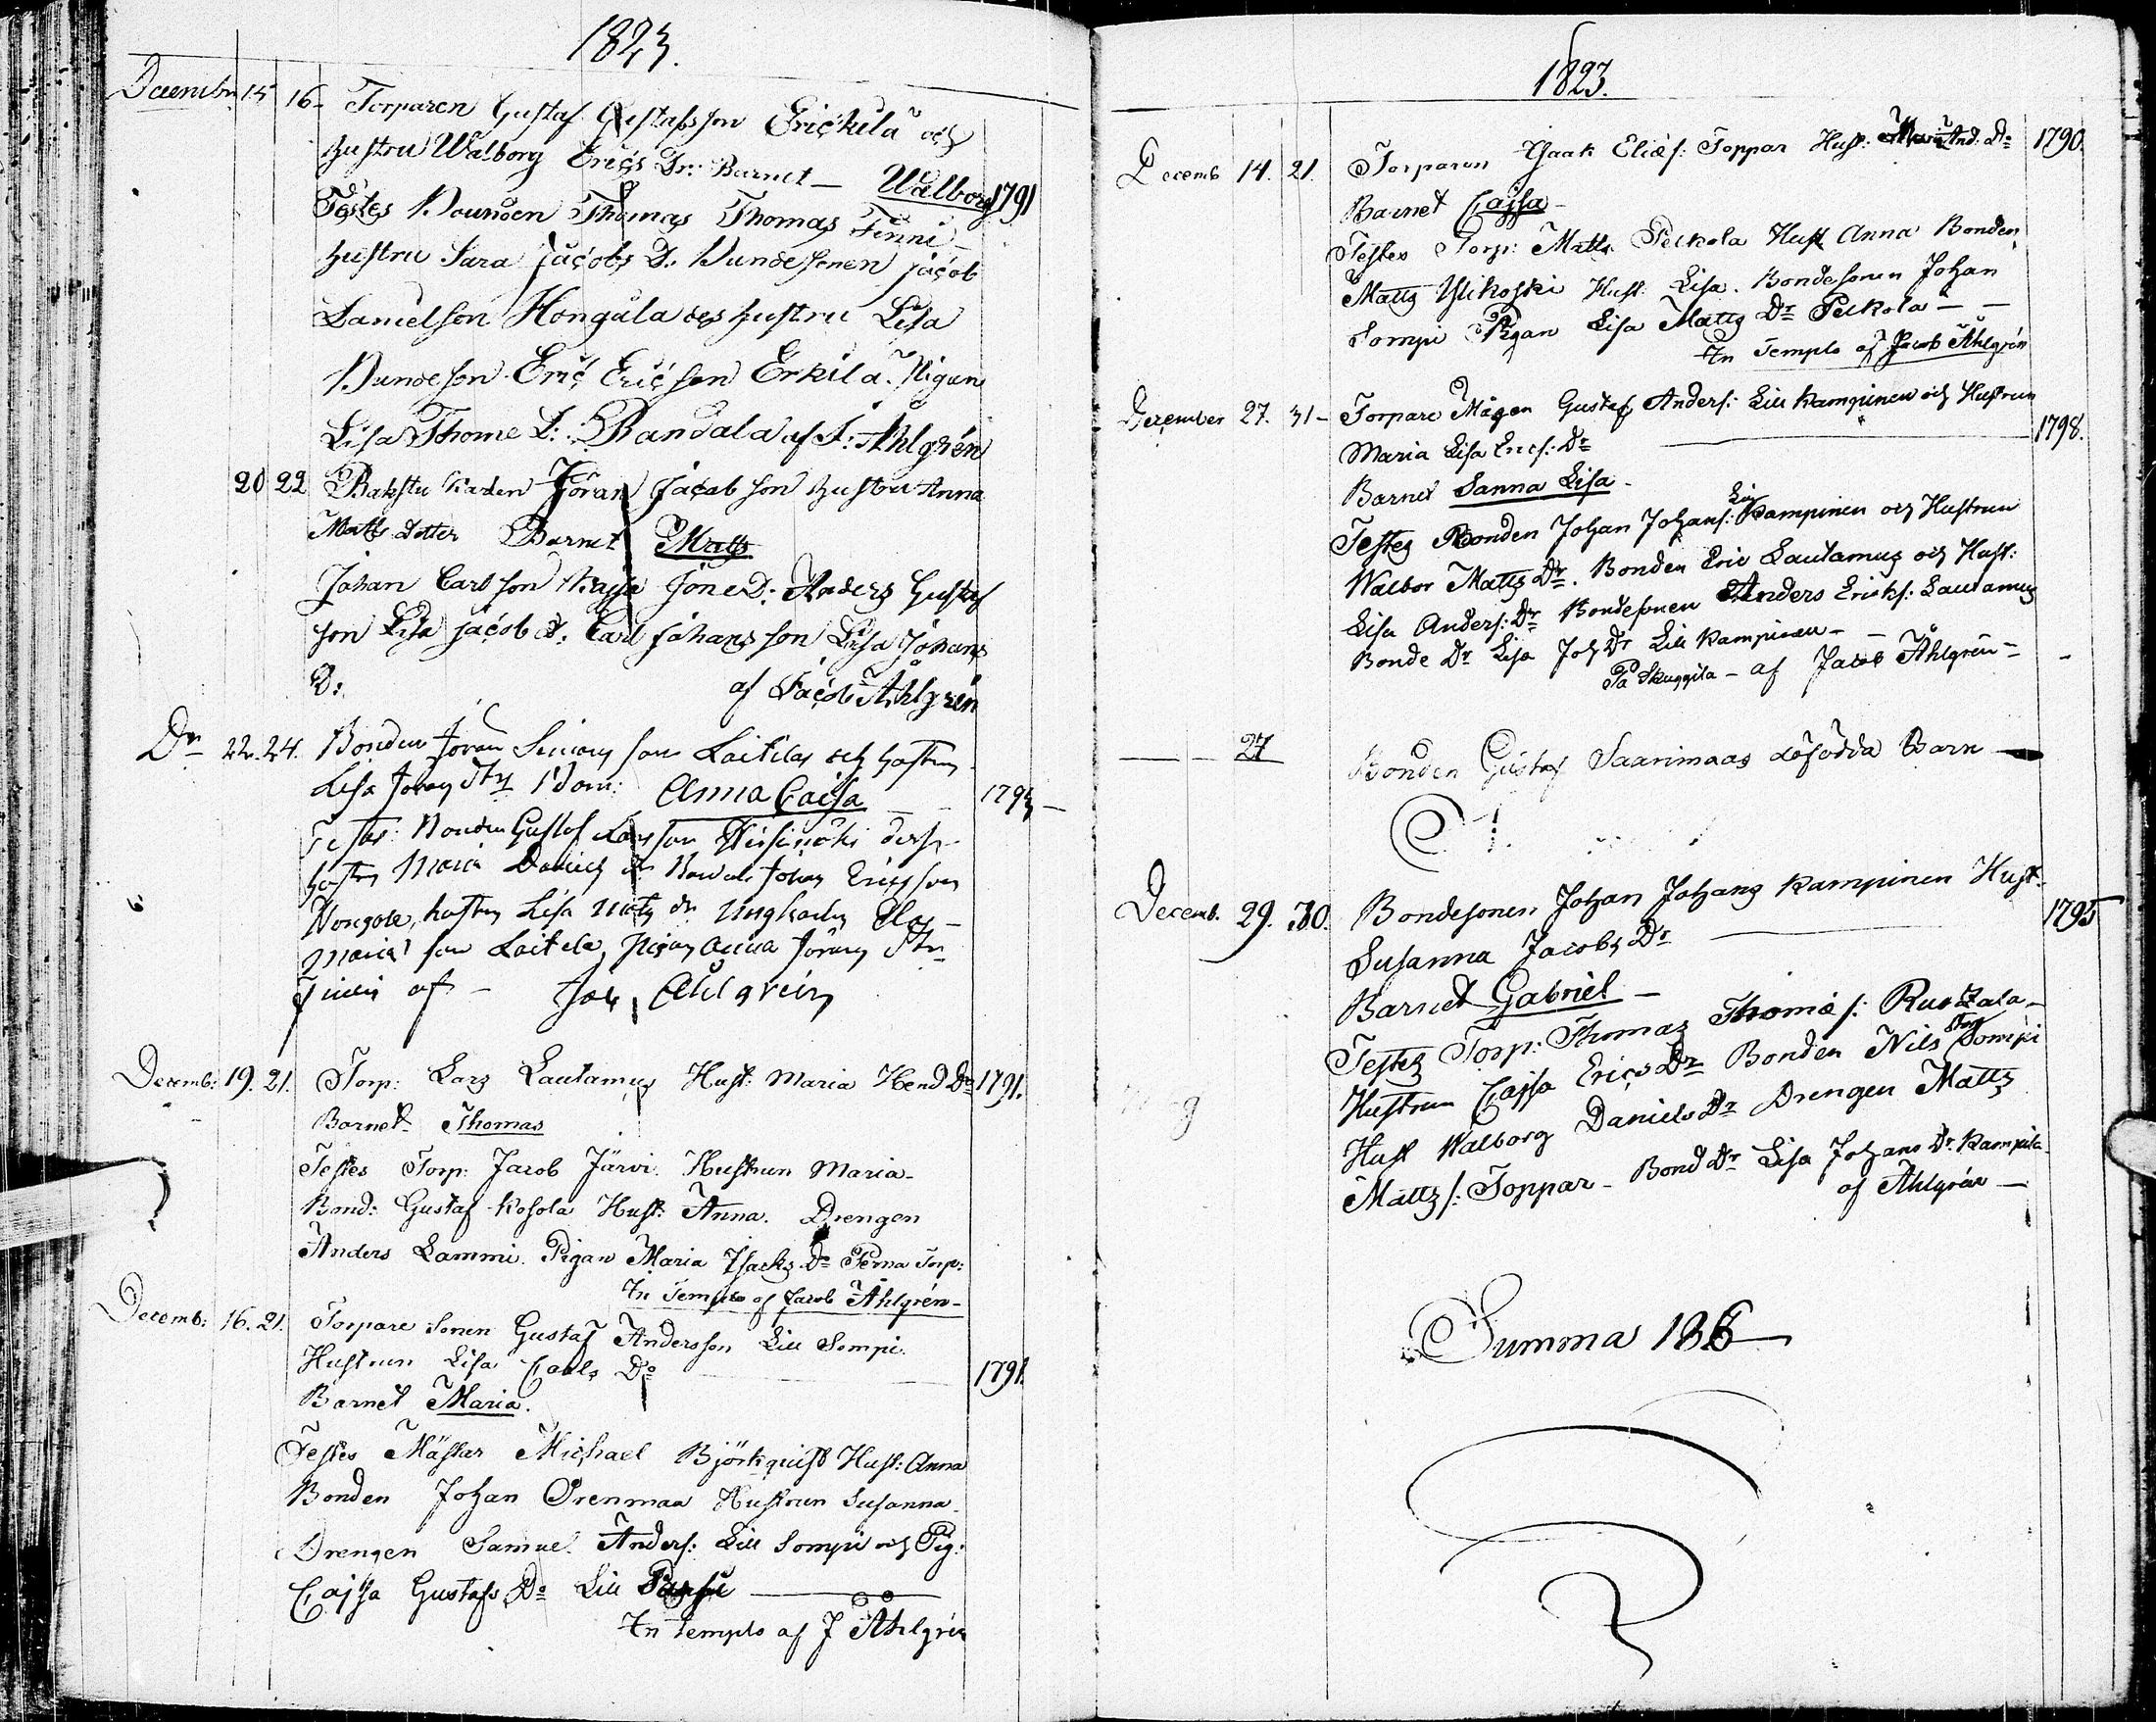 1823.
Decembr. 15 16- Torparen Gustaf Gustafsson Erickilä och
hustru Walborg Erics Dr: Barnet - Walborg 1791
Testes Bounden Thomas Thomas Finni-
hustru Sara Jacobs D. Bundesonen Jacob
Danielson Hongola och hustru Lisa
Bundeson Eric Ericson Erkilä. Pigan
Lisa Thome D: Randala af J: Åhlgrén
20 22 Bakstu karlen Jöran Jacob son hustru Anna
Matts dotter Barnet Matts
Johan Carlsson Kajsa Jöne D: Anders Gustaf
son Lisa Jacob d: Carl Johans son Lisa Johans
D: af Jacob Åhlgren
Dn 22. 24. Bonden Jöran Simons son Laitila och hustrun
Lisa Jörans Dtr Barn: Anna Caisa 1793 -
Testes: Bonden Gustaf Larsson
hustrun Maria Daniels dr Johan Ericsson
hustrun Lisa Matts dr
son Laitila, Pigan Anna Jörans Dtr
af - Jac, Åhlgrén
Decemb: 19. 21. Torp: Lars Lautamus Hust: Maria Hend Dr 1791.
Barnet Thomas
Testes Torp: Jacob Järvi. Hustrun Maria-
Bond: Gustaf Kosola Hust: Anna. Drengen
Anders Lammi. Pigan Maria Isacks Dr Perna Torp:
In Templo af Jacob Åhlgrén-
Decemb: 16. 21. Torpare Sonen Gustaf Andersson Lill Sompi.
Hustrun Lisa Carls Dr 1791.
Barnet Maria.
Testes Mästar Michael Björkquist Hust: Anna
Bonden Johan Orenmaa Hustrun Susanna-
Drengen Samuel Anders: Lill Sompi och Pig:
Cajsa Gustafs Dr Lill
In templo af J Åhlgrén
1823.
Decemb 14. 21. Torparen Isaak Elias: Toppar Hust: Maria And: Dr 1790.
Barnet Cajsa -
Testes Torp: Matts Peltola Hust Anna Bonden
Matts Ylikoski Hust: Lisa. Bondesonen Johan
Sompi Pigan Lisa Matts Dr Peltola - -
In Templo af Jacob Åhlgrén
December 27. 31- Torpare Mågen Gustaf Anders: Lill Kampinen och Hustrun
Maria Lisa Erics: Dr 1798.
Barnet Sanna Lisa -
Testes Bonden Johan Johans: Lill Kampinen och Hustrun
Walbor Matts Dr. Bonden Eric Lautamus och Hust:
Lisa Anders: Dr Bondesonen Anders Ericks: Lautamus
Bonde Dr Lisa Joh Dr Lill Kampinen - -
På Skuggila - af Jacob Åhlgrén -
27 Bonden Gustaf Saarimaas döfödda Barn
Decemb. 29. 30. Bondesonen Johan Johans Kampinen Hust. 1795
Susanna Jacobs Dr
Barnet Gabriel -
Testes Torp: Thomas Thomæ s: Rundala -
Hustrun Cajsa Erics Dr Bonden Nils Stor Sompi
Hust Walborg Daniels Dr Drengen Matts
Matts s: Toppar - Bond Dr Lisa Johans Dr Kampila
af Åhlgrén -
Summa 186